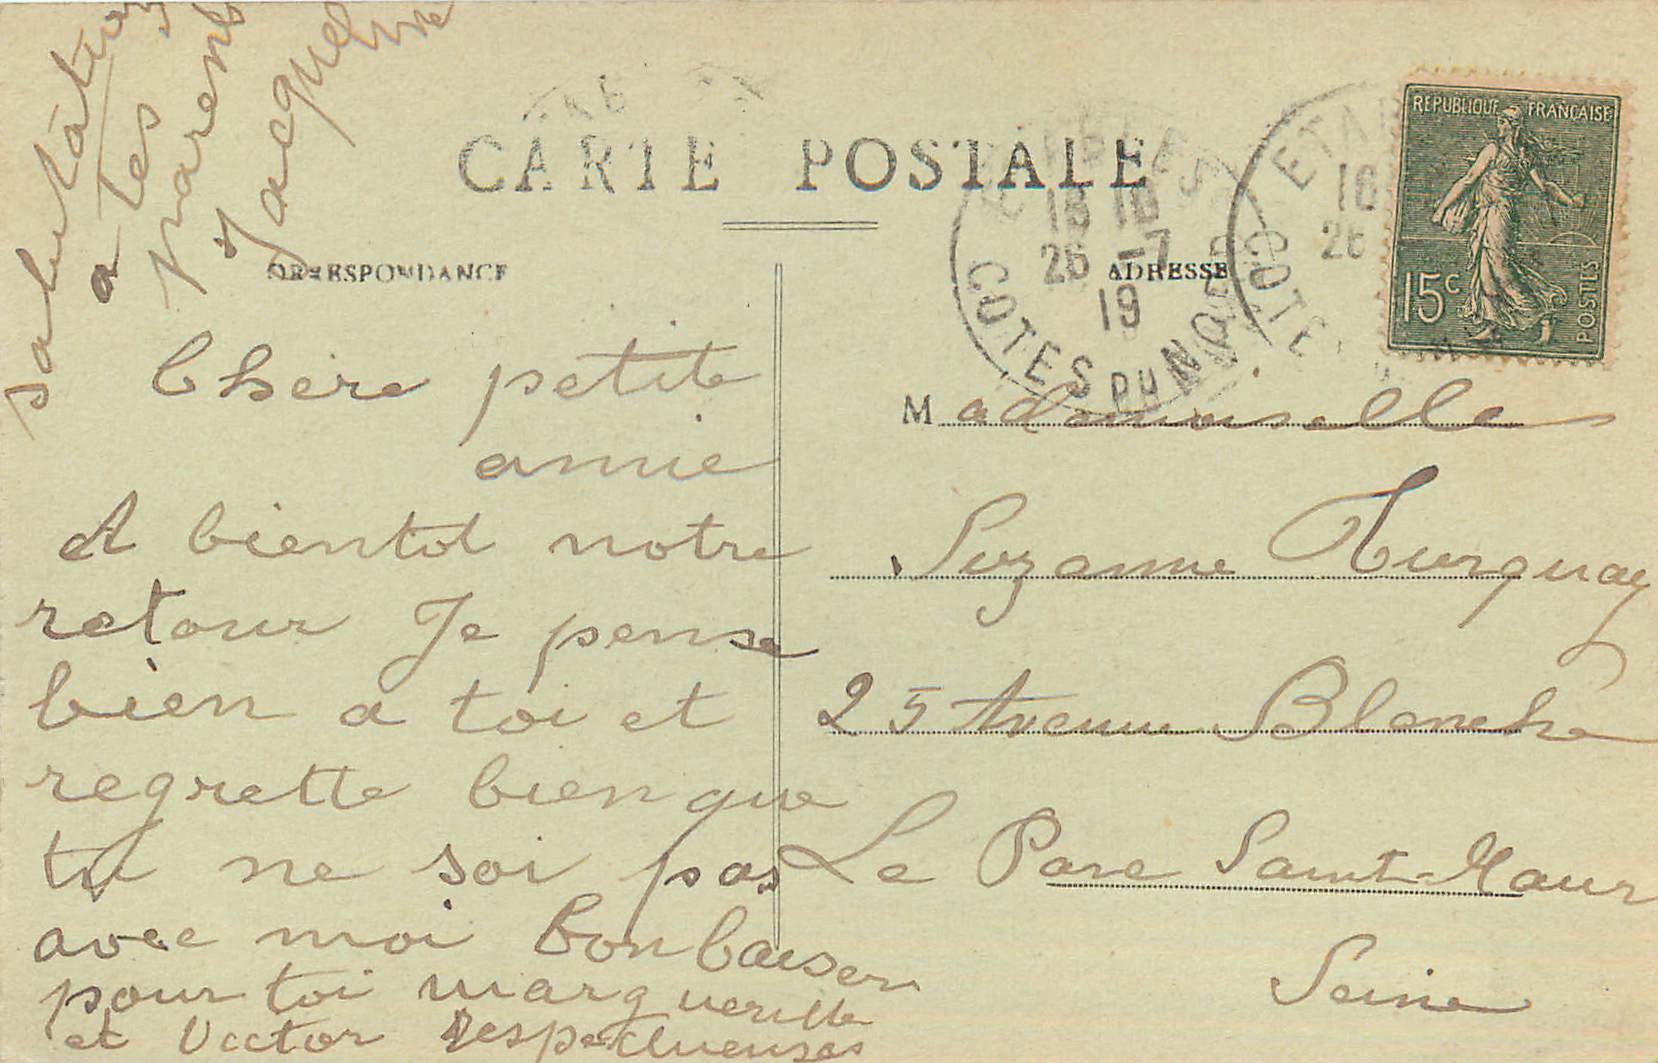 CARTE POSTALE
CORRESPONDANCE
ADRESSE
REPUBLIQUE FRANÇAISE
15c
POSTES
ETABLES
18 10
26 -7
19
COTES DU NORD
ETAB
18
26
COTE
Chère petite
amie
A bientot notre
retour Je pense
bien a toi et
regrette bien que
tu ne soi pas
avec moi Bon baiser
pour toi marguerite
et Victor Respectueuses
salutations
a tes
parents
Jacqueline
Mademoiselle
Suzanne Turquay
25 Avenue Blanche
Le Parc Saint-Maur
Seine